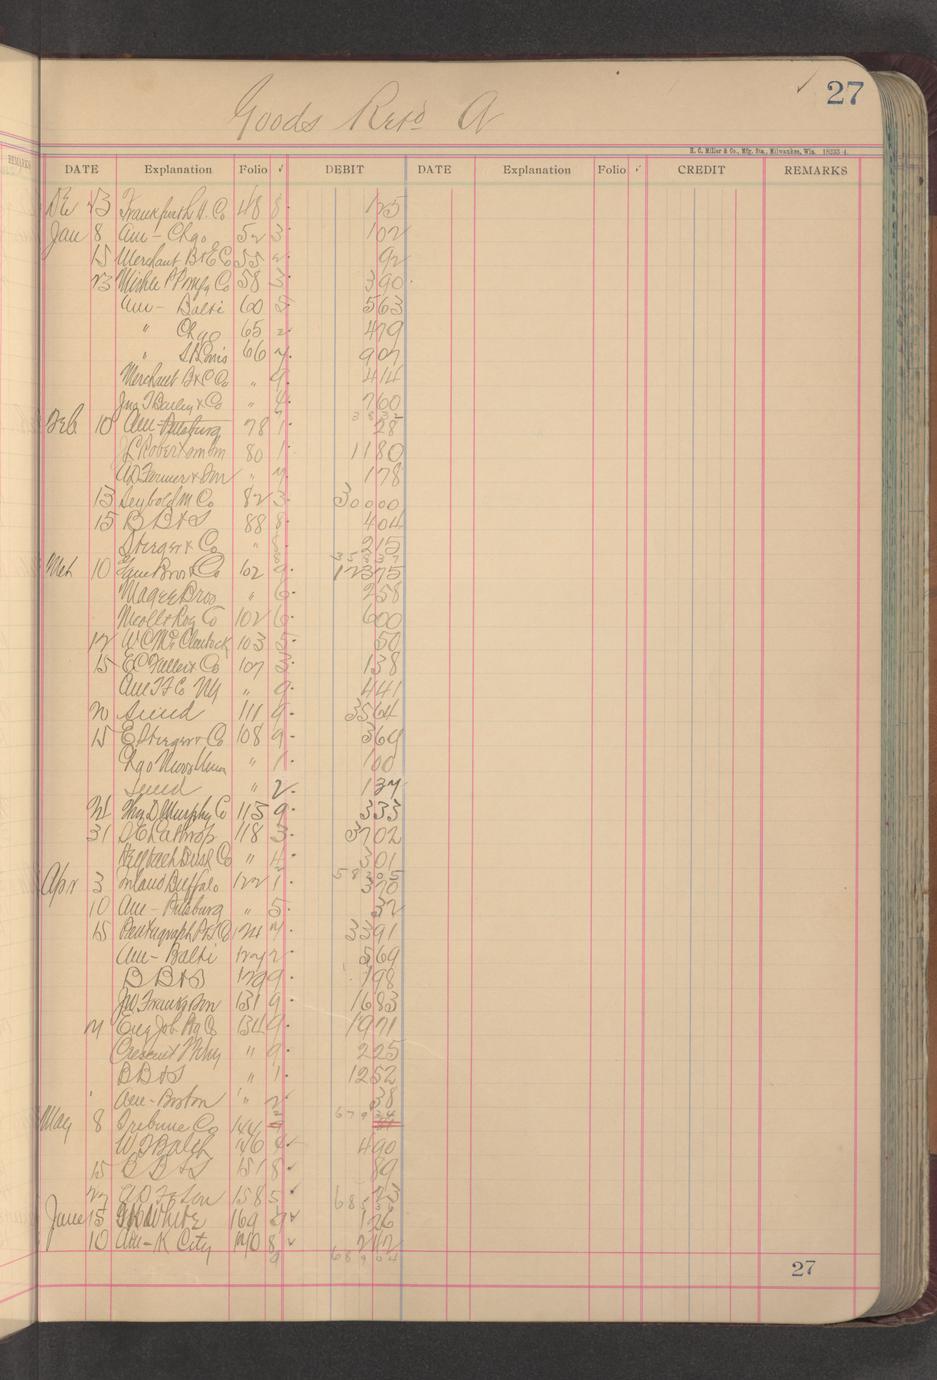 27
Goods Retd A
H. C. Miller & Co., Mfg. Sta., Milwaukee, Wis. 18233-4.
DATE Explanation Folio ✓ DEBIT DATE Explanation Folio ✓ CREDIT REMARKS
DE 23 Frankfurth H. Co 48 8 125
Jan 8 Am - Chgo 52 3 102
15 Merchant B&E Co 55 2 92
23 58 3 390
Am - Balti 60 8 563
" Chgo 65 2 479
" St Louis 66 7 907
Merchant B&C Co " 9 414
Jno T Barley & Co " 4 760
3832
Feb 10 Am - Pittsburg 78 1 28
80 1 1180
A D Farmer & Son " 7 178
13 Seybold M Co 82 3 30000
15 B B & S 88 8 404
Steiger & Co " 215
35837
Mch 10 Bros & Co 102 9 12375
Magee Bros " 6 258
Nicoll & Roy Co 102 6 600
12 W C McClintock 103 5 50
15 E C Fuller & Co 107 3 138
Am T F C NY " 9 441
111 9 3564
15 E Steiger & Co 108 9 369
Chgo " 1 100
" 2 137
Thos D Murphy Co 115 9 333
31 D E Lathrop 118 3 3702
" 4 301
58205
Apr 3 Inland Buffalo 122 1 370
10 Am - Pittsburg " 5 32
15 Pentagraph P&S Co 124 7 3391
Am - Balti 127 2 569
B B & S 129 9 198
Jno Franks Son 131 9 1683
134 9 1971
Crescent " 9 225
B B & S " 1 1252
Am - Boston " 2 38
May 8 Tribune Co 144
W F Balch 146 4 490
15 B B & S 151 8 89
27 158 5 23
June 15 White 169 126
10 Am - K City 170 8 212
27